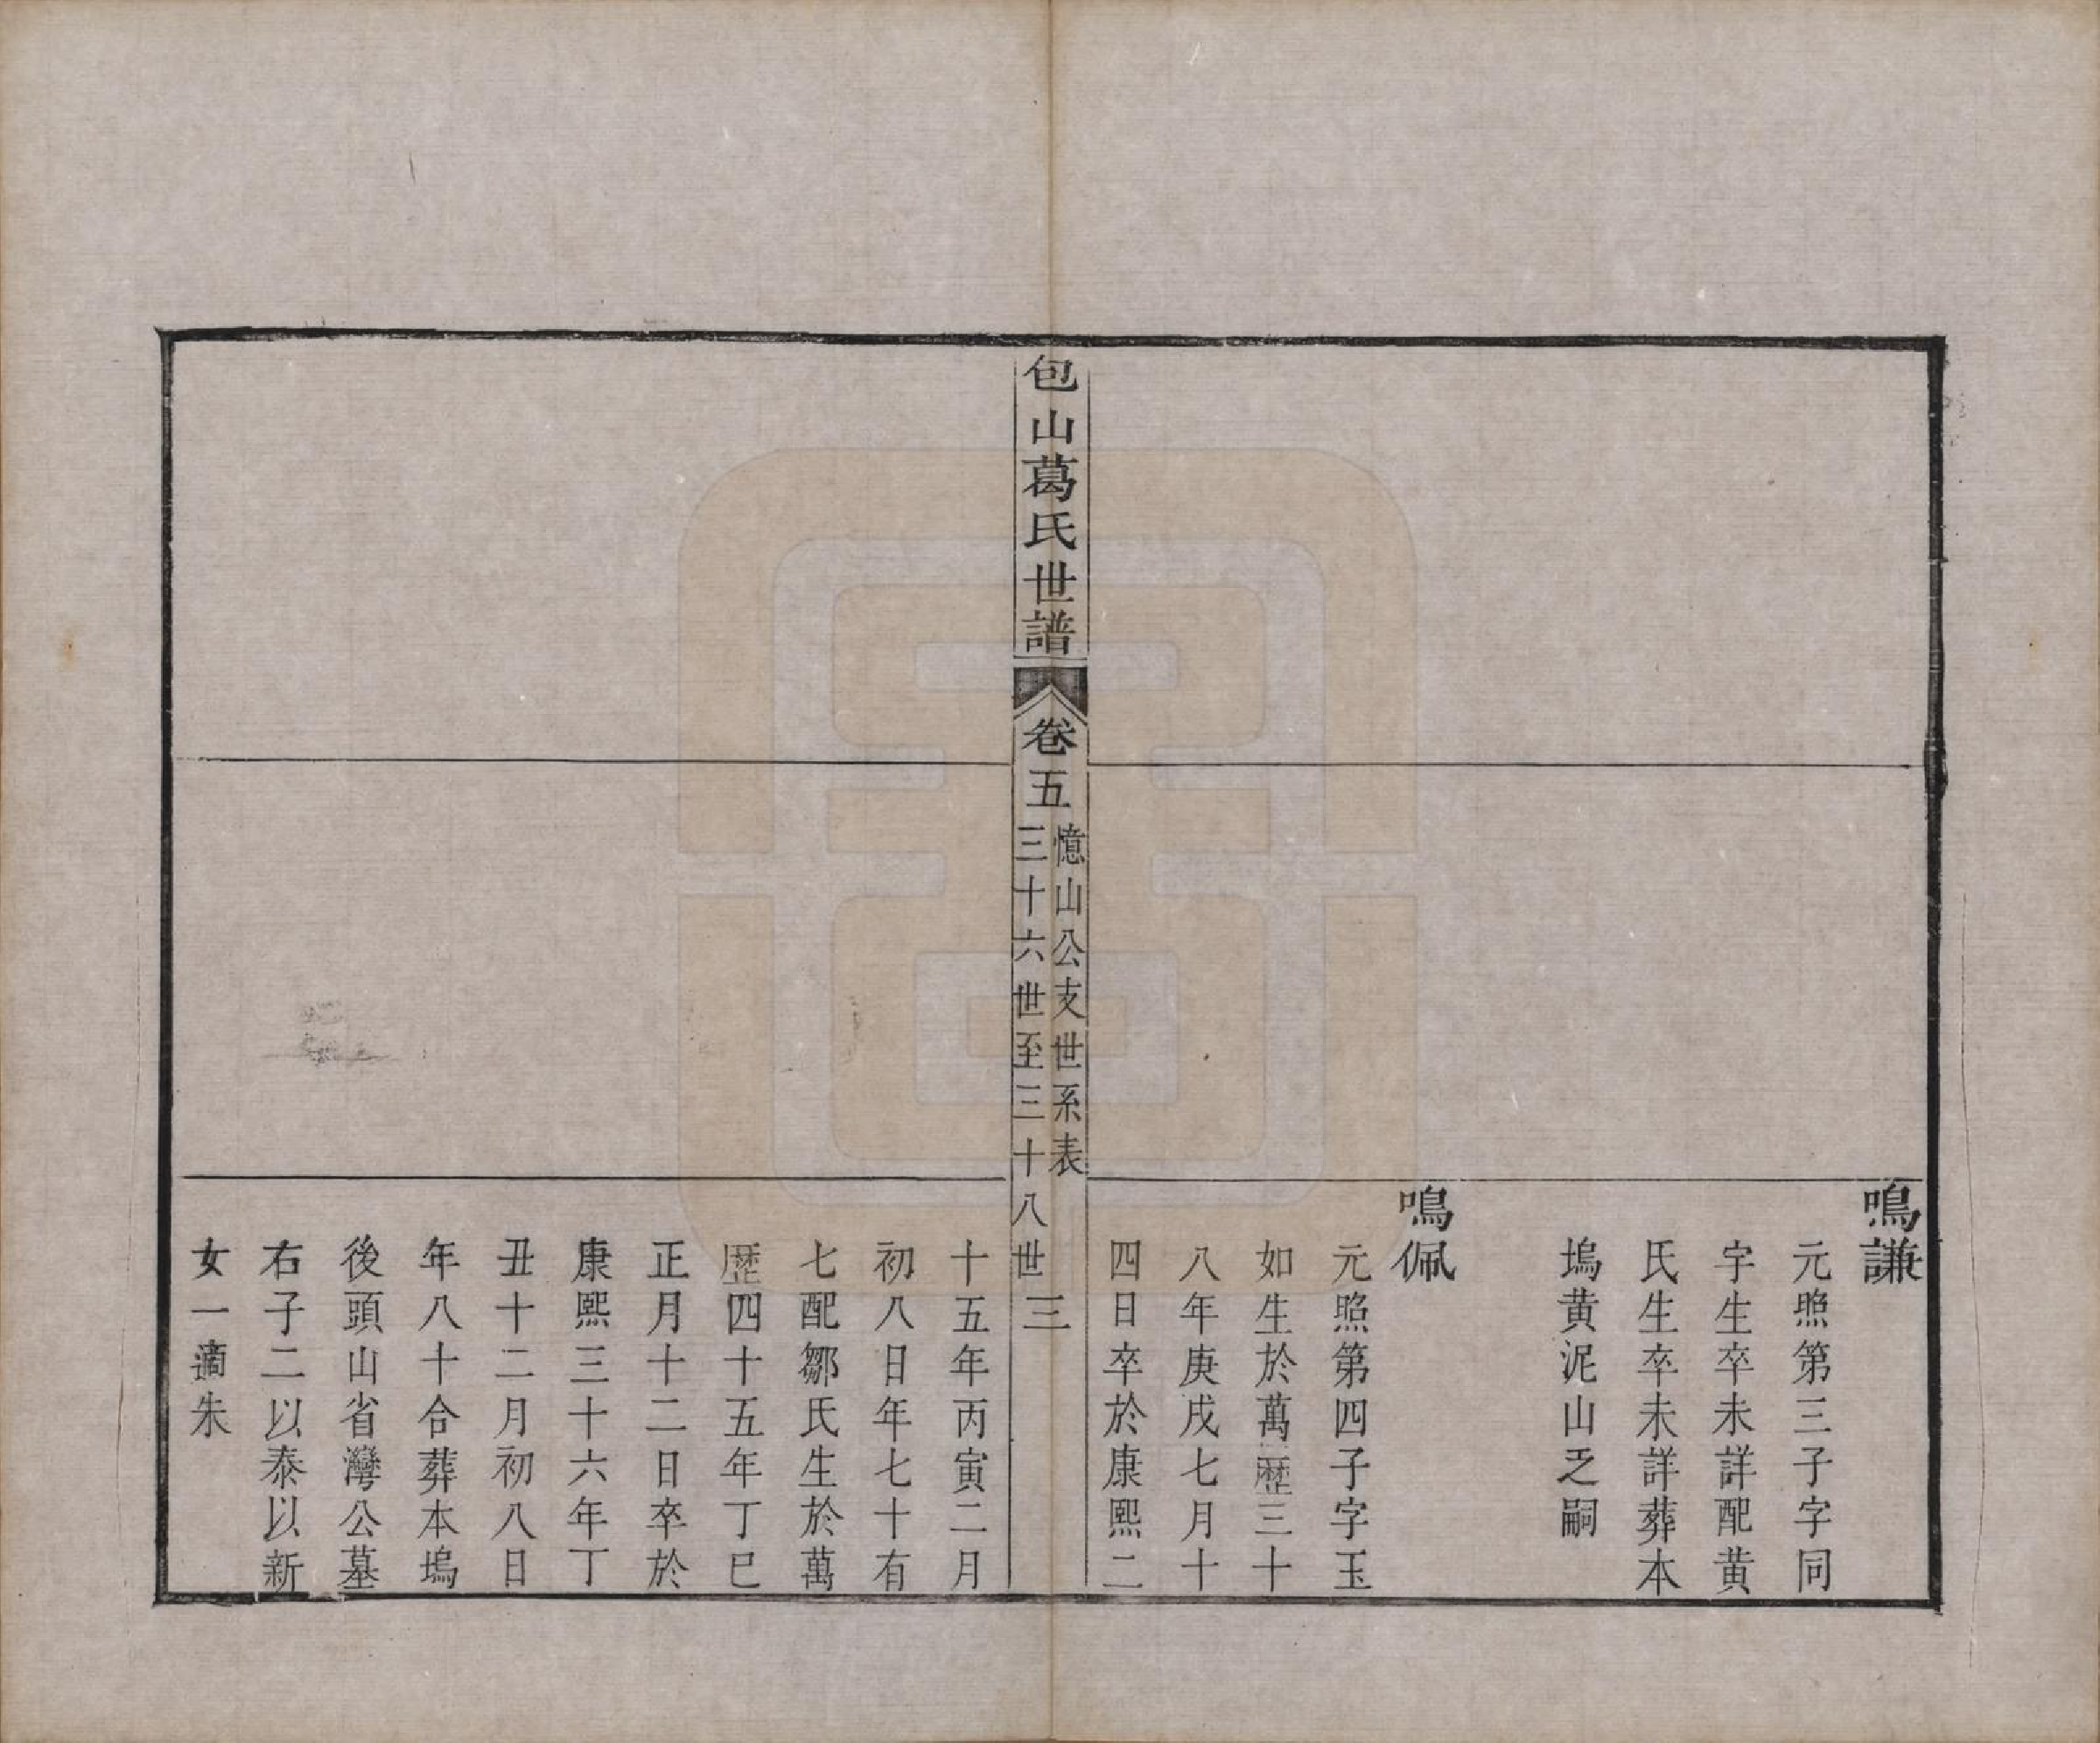 鳴謙
元煦第三子字同
字生卒未詳配黄
氏生卒未詳葬本
塢黄泥山乏嗣
鳴佩
元煦第四子字玉
如生於萬歷三十
八年庚戌七月十
四日卒於康熙二
包山葛氏世譜
卷五
憶山公支世系表
三十六世至三十八世
三
十五年丙寅二月
初八日年七十有
七配鄒氏生於萬
歷四十五年丁巳
正月十二日卒於
康熙三十六年丁
丑十二月初八日
年八十合葬本塢
後頭山省灣公墓
右子二以泰以新
女一適朱